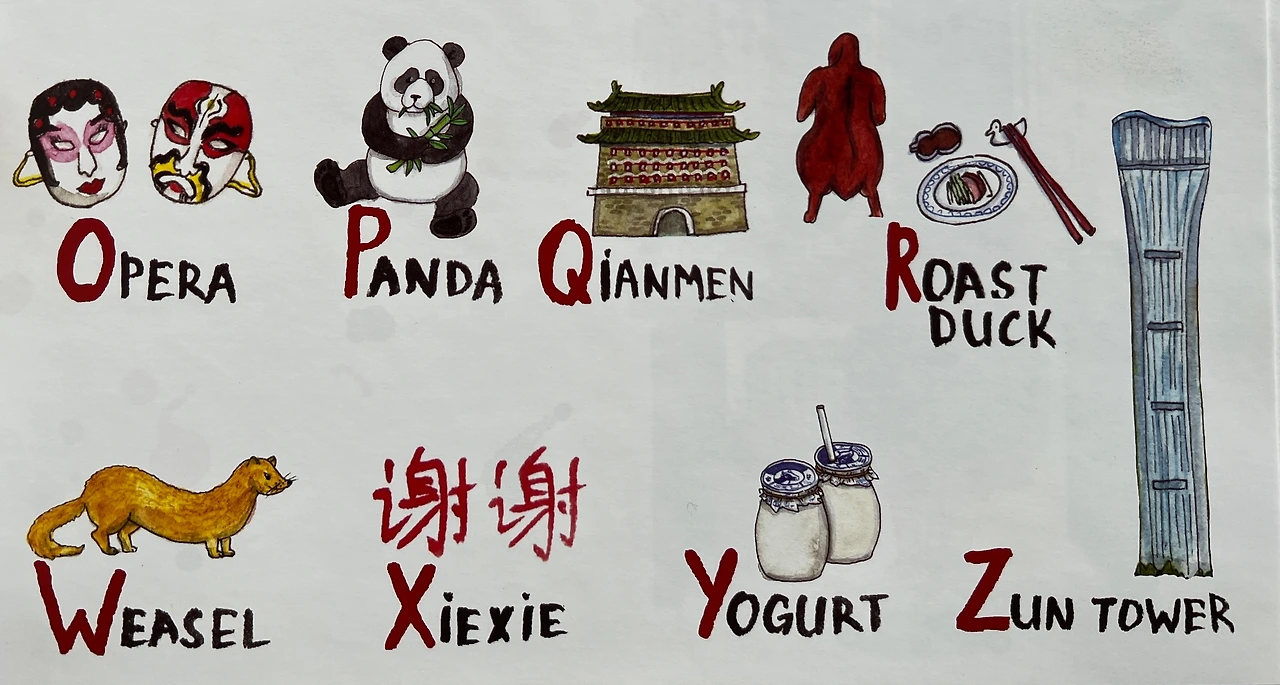 OPERA
PANDA
QiANMEN
ROAST
DUCK
WEASEL
谢谢
XiEXiE
YOGURT
ZUN TOWER